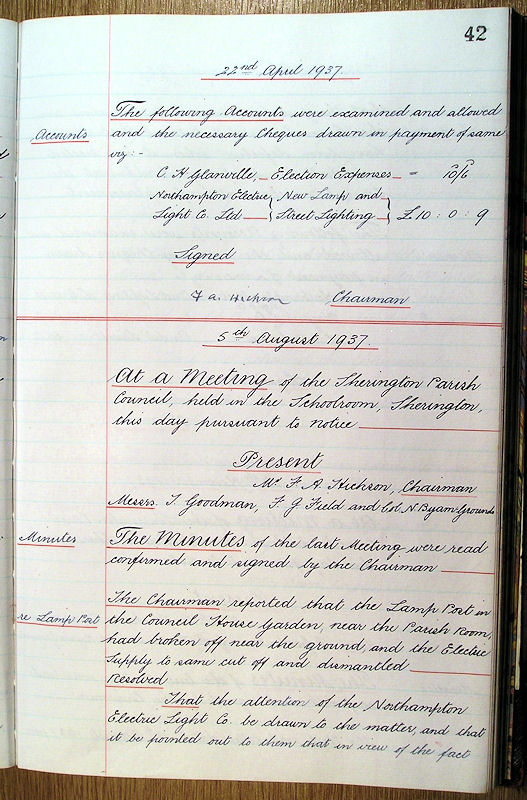 42
22nd April 1937.
Accounts
The following Accounts were examined and allowed
and the necessary Cheques drawn in payment of same
viz:-
C. H Glanville, Election Expenses = 10/6
Northampton Electric New Lamp and
Light Co. Ltd Street Lighting £10 : 0 : 9
Signed
F A. Hickson Chairman
5th August 1937.
At a Meeting of the Sherington Parish
Council, held in the Schoolroom, Sherington,
this day pursuant to notice
Present
Mr F. A. Hickson, Chairman
Messrs. J. Goodman, F. G Field and Col. N Byam-Grounds
Minutes
The Minutes of the last Meeting were read
confirmed and signed by the Chairman
re Lamp Post
The Chairman reported that the Lamp Post in
the Council House Garden, near the Parish Room,
had broken off near the ground, and the Electric
Supply to same cut off and dismantled
Resolved
That the attention of the Northampton
Electric Light Co. be drawn to the matter, and that
it be pointed out to them that in view of the fact